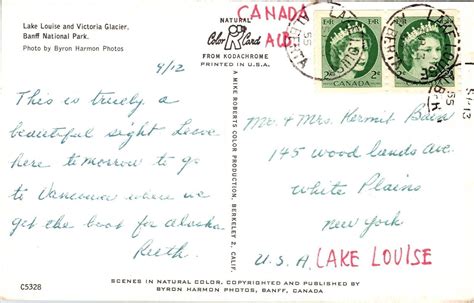 Lake Louise and Victoria Glacier,
Banff National Park.
Photo by Byron Harmon Photos
NATURAL
Color Card
FROM KODACHROME
PRINTED IN U.S.A.
CANADA
ALB.
LAKE LOUISE
ALBERTA
55
CANADA
2
2
4/12
This is truely a
beautiful sight Leave
here tomorrow to go
to Vancouver where we
get the boat for Alaska
Ruth.
A MIKE ROBERTS COLOR PRODUCTION, BERKELEY 2, CALIF.
Mr & Mrs. Kermit
145 woodlands Ave
White Plains
New York
U.S.A.
LAKE LOUISE
C5328
SCENES IN NATURAL COLOR, COPYRIGHTED AND PUBLISHED BY
BYRON HARMON PHOTOS, BANFF, CANADA